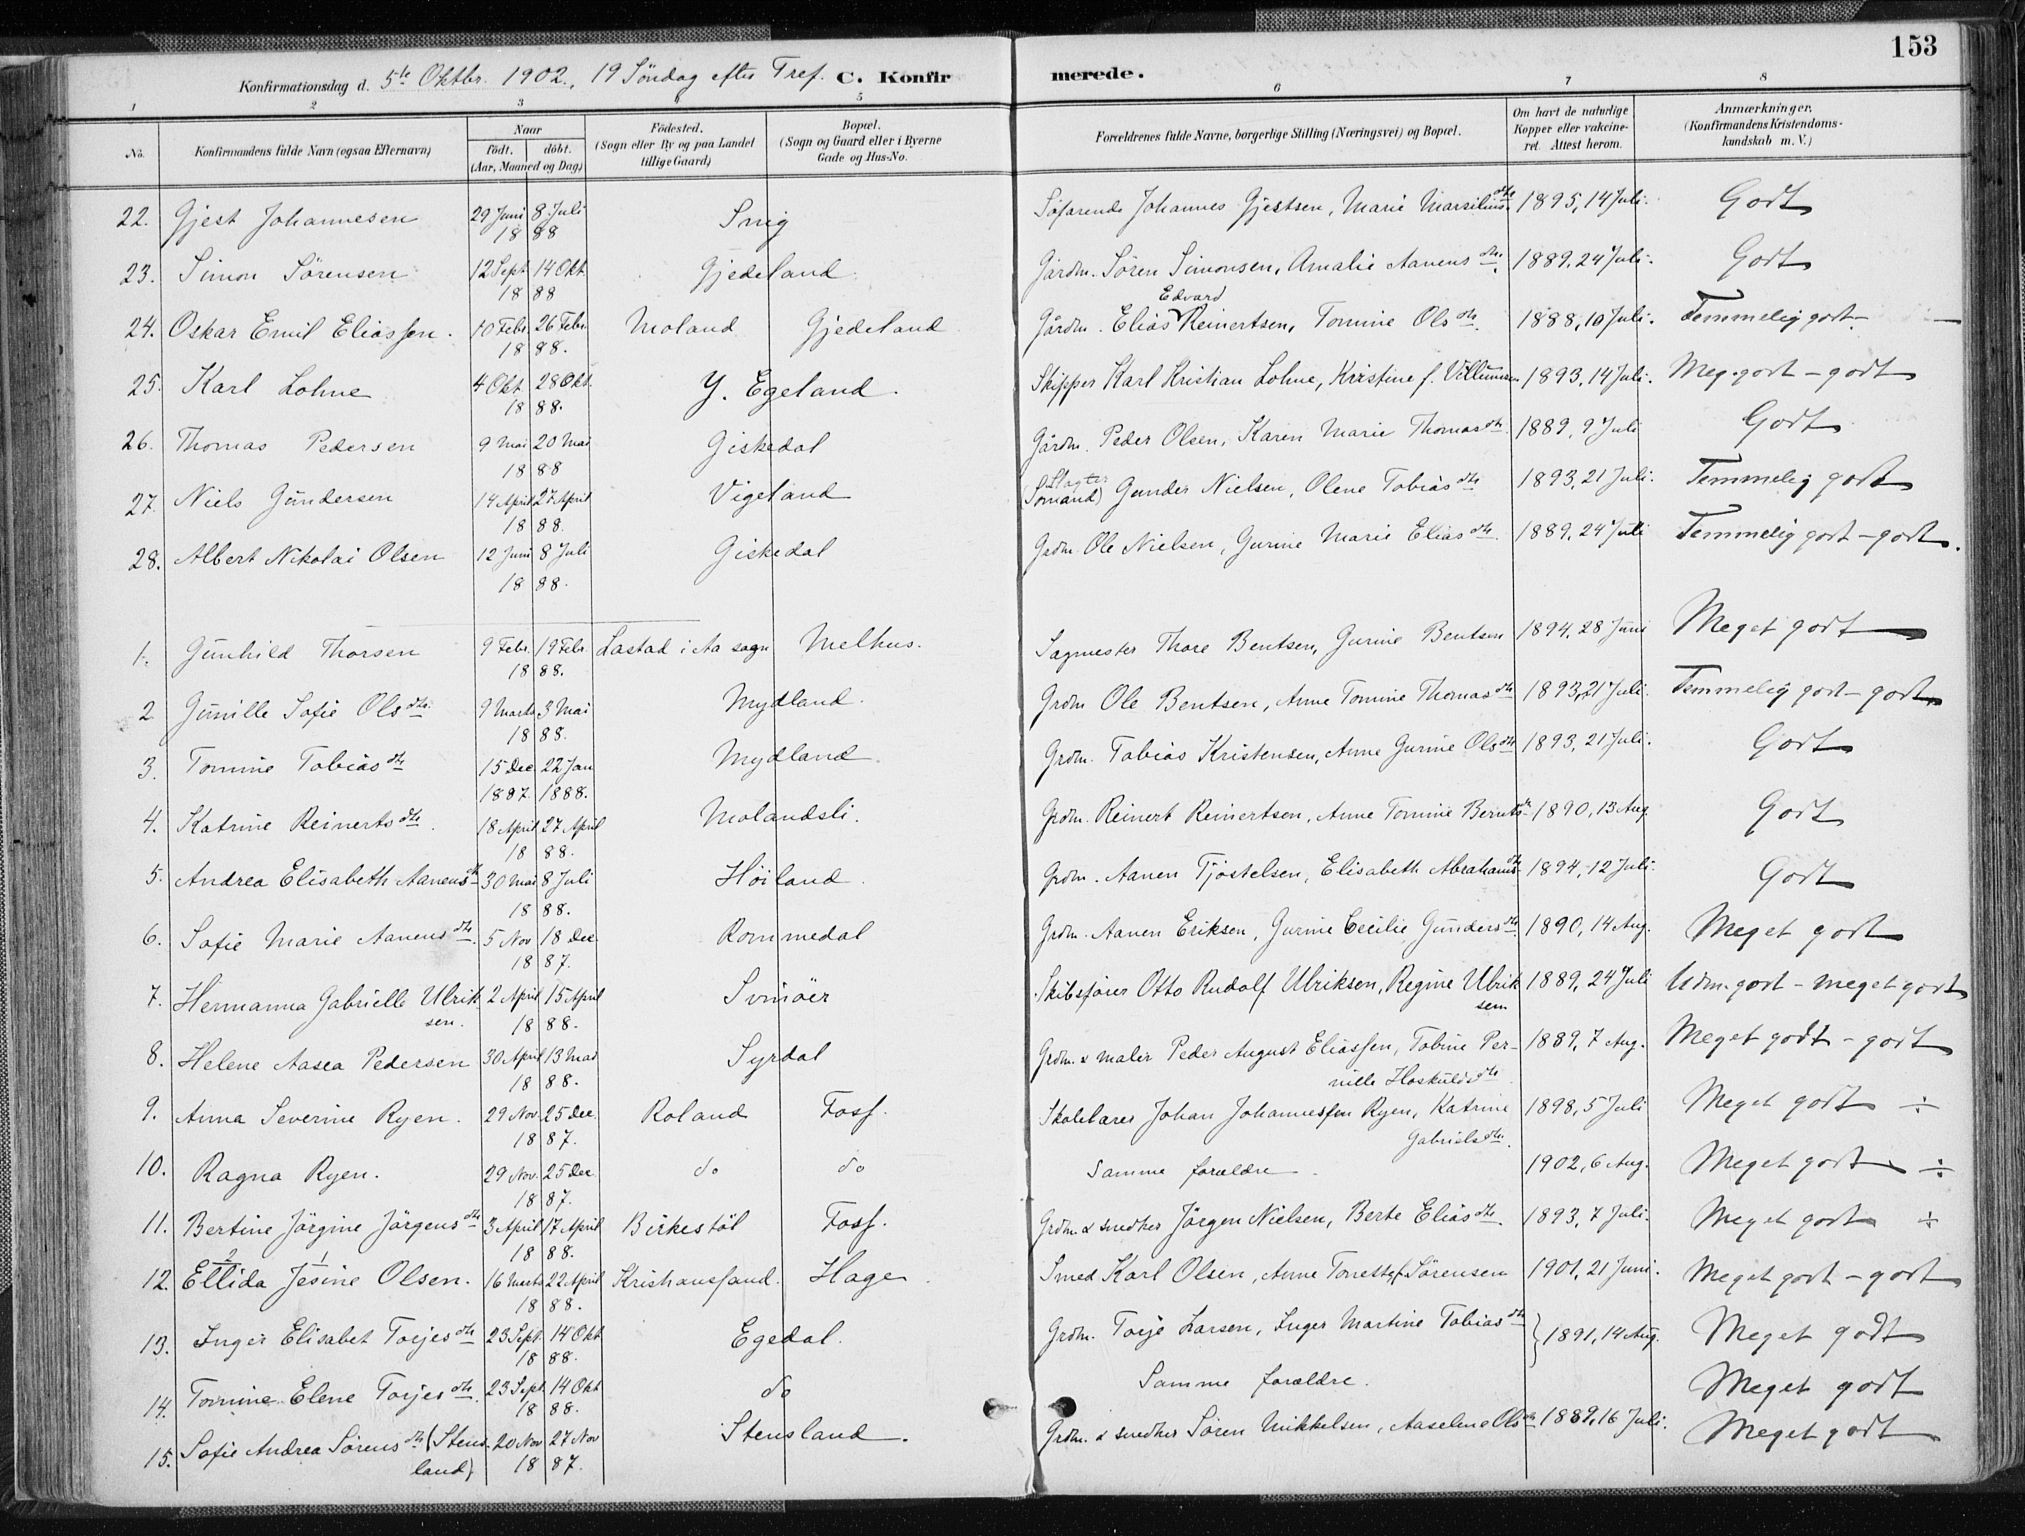 153
Konfirmationsdag d. 5te Oktbr. 1902., 19 Söndag efter Tref. C. Konfirmerede.
1 2 3 4 5 6 7 8
No. Konfirmandens fulde Navn (ogsaa Efternavn) Naar födt. döbt. (Aar, Maaned og Dag) Födested. (Sogn eller By og paa Landet tillige Gaard) Bopæl. (Sogn og Gaard eller i Byerne Gade og Hus-No. Forældrenes fulde Navne, borgerlige Stilling (Næringsvei) og Bopæl. Om havt de naturlige Kopper eller vakcineret. Attest herom. Anmærkninger. (Konfirmandens Kristendomskundskab m. V.)
22. Gjest Johannesen 29 Juni 8 Juli 1888 Snig Söfarende Johannes Gjestsen, Marie Marsilius dtr 1895, 14 Juli. Godt
23. Simon Sörensen 12 Sept. 14 Okt. 1888 Gjedeland Gårdm. Sören Simonsen, Amalie Aanensdtr. 1889, 24 Juli. Godt
24. Oskar Emil Eliassen. 10 Febr. 26 Febr. 1888. Moland Gjedeland Gårdm. Elias Edvard Reinertsen, Tomine Olsdtr. 1888, 10 Juli. Temmelig godt. —
25. Karl Lohne 4 Okt. 28 Okt. 1888. Y. Egeland. Skipper Karl Kristian Lohne, Kristine f. Villumsen 1893, 14 Juli. Meg. godt – godt
26. Thomas Pedersen 9 Mai 20 Mai 1888 Giskedal Gårdm. Peder Olsen, Karen Marie Thomasdtr. 1889, 9 Juli Godt
27. Niels Gundersen 14 April 27 April 1888. Vigeland Slagter (Sömand) Gunder Nielsen, Olene Tobiasdtr 1893, 21 Juli. Temmelig godt
28. Albert Nikolai Olsen 12 Juni 8 Juli 1888. Giskedal Grdm. Ole Nielsen, Gurine Marie Eliasdtr. 1889, 24 Juli Temmelig godt – godt.
1. Gunhild Thorsen 9 Febr. 19 Febr. 1888. Lastad i Aa sogn Melhus. Sagmester Thore Bentsen, Gurine Bentsen 1894, 28 Juni Meget godt
2 Gunille Sofie Olsdtr. 9 Marts 3 Mai 1888. Mydland. Grdm Ole Bentsen, Anne Tomine Thomasdtr 1893, 21 Juli. Temmelig godt – godt
3. Tomine Tobiasdtr 15 Dec. 22 Jan 1887. 1888. Mydland. Grdm. Tobias Kristensen, Anne Gurine Olsdtr 1893, 21 Juli. Godt
4. Katrine Reinertsdtr. 18 April 27 April 1888. Molandsli. Grdm. Reinert Reinertsen, Anne Tomine Berntsdtr 1890, 13 Aug. Godt
5. Andrea Elisabeth Aanensdtr 30 Mai 8 Juli 1888. Höiland. Grdm. Aanen Tjöstelsen, Elisabeth Abrahamsdtr 1894, 12 Juli. Godt
6. Sofie Marie Aanensdtr. 5 Nov 18 Dec. 1887. Rommedal Grdm. Aanen Eriksen, Gurine Cecilie Gundersdtr. 1890, 14 Aug. Meget godt
7. Hermanna Gabrielle Ulriksen. 2 April 15 April 1888. Svinöer Skibsförer Otto Rudolf Ulriksen, Regine Ulriksen 1889, 24 Juli Udm. godt – meget godt
8. Helene Aasea Pedersen 30 April 13 Mai 1888. Syrdal Grdm. & maler Peder August Eliassen, Tobine Pernille Hoskuldsdtr. 1889, 7 Aug. Meget godt – godt
9. Anna Severine Ryen. 29 Nov. 25 Dec. 1887. Roland Foss. Skolelærer Johan Johannessen Ryen, Katrine Gabrielsdtr. 1898, 5 Juli Meget godt ÷
10. Ragna Ryen. 29 Nov. 25 Dec 1887. do do Samme forældre. 1902, 6 Aug. Meget godt ÷
11. Bertine Jörgine Jörgensdtr 3 April 17 April 1888. Birkestöl Foss. Grdm. & snedker Jörgen Nielsen, Berte Eliasdtr. 1893, 7 Juli. Meget godt ÷
2 1
12. Ellida Jesine Olsen. 16 Marts 22 April 1888. Kristianssand. Hage. Smed Karl Olsen, Anne Tonette f. Sörensen 1901, 21 Juni. Meget godt – godt
13. Inger Elisabet Torjesdtr 23 Sept. 14 Okt 1888. Egedal. Grdm. Torje Larsen, Inger Martine Tobiasdtr } 1891, 14 Aug. Meget godt
14. Tomine Elene Torjesdtr. 23 Sept. 14 Okt 1888. do Samme forældre. Meget godt
15. Sofie Andrea Sörensdtr (Stensland) 20 Nov 27 Nov 1887. Stensland. Grdm. & snedker Sören Mikkelsen, Aaselene Olsdtr 1889, 16 Juli. Meget godt